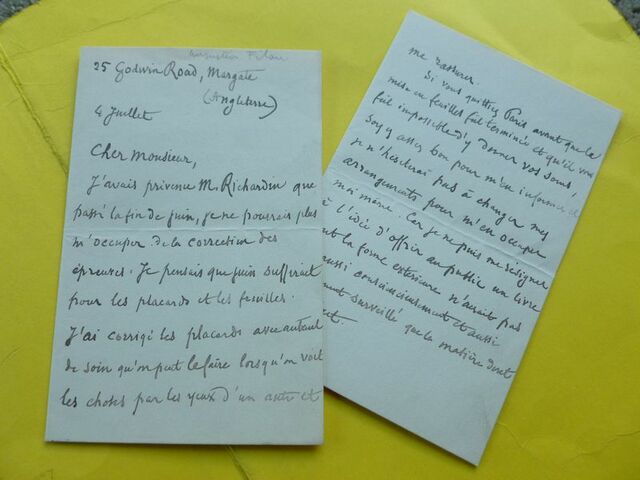 Augustin Filon
25 Godwin Road, Margate
(Angleterre)
4 Juillet
Cher Monsieur,
J'avais prévenu M. Richardin que
passé la fin de juin, je ne pourrais plus
m'occuper de la correction des
épreuves. Je pensais que juin suffirait
pour les placards et les feuilles.
J'ai corrigé les placards avec autant
de soin qu'on peut le faire lorsqu'on voit
les choses par les yeux d'un autre et
me rassurer.
Si vous quittiez Paris avant que la
mise en feuilles fût terminée et qu'il vous
fût impossible d'y donner vos soins,
soyez assez bon pour m'en informer et
je n'hésiterai pas à changer mes
arrangements pour m'en occuper
moi-même. Car je ne puis me résigner
à l'idée d'offrir au public un livre
la forme extérieure n'aurait pas
aussi consciencieusement et aussi
surveillé que la matière